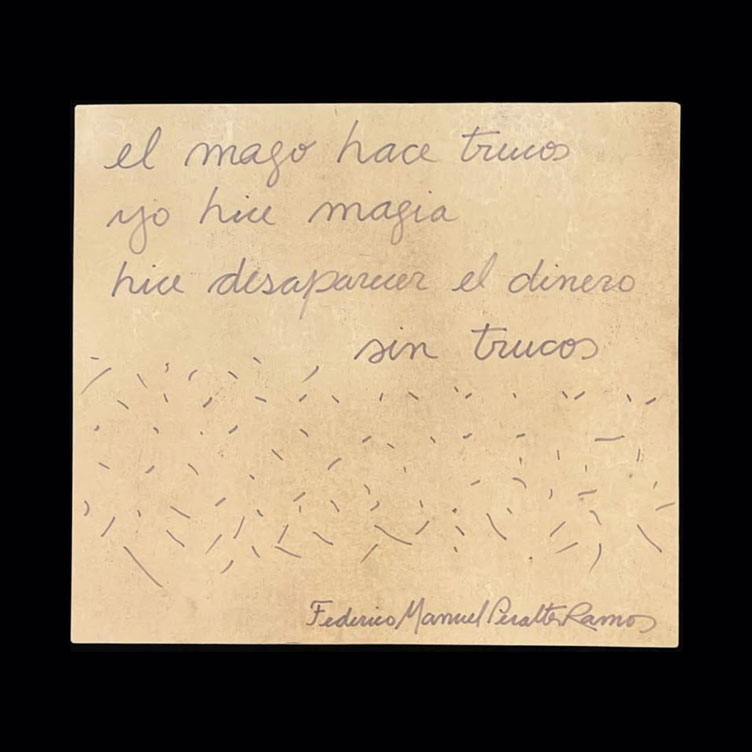 el mago hace trucos
yo hice magia
hice desaparecer el dinero
sin trucos
Federico Manuel Peralta Ramos